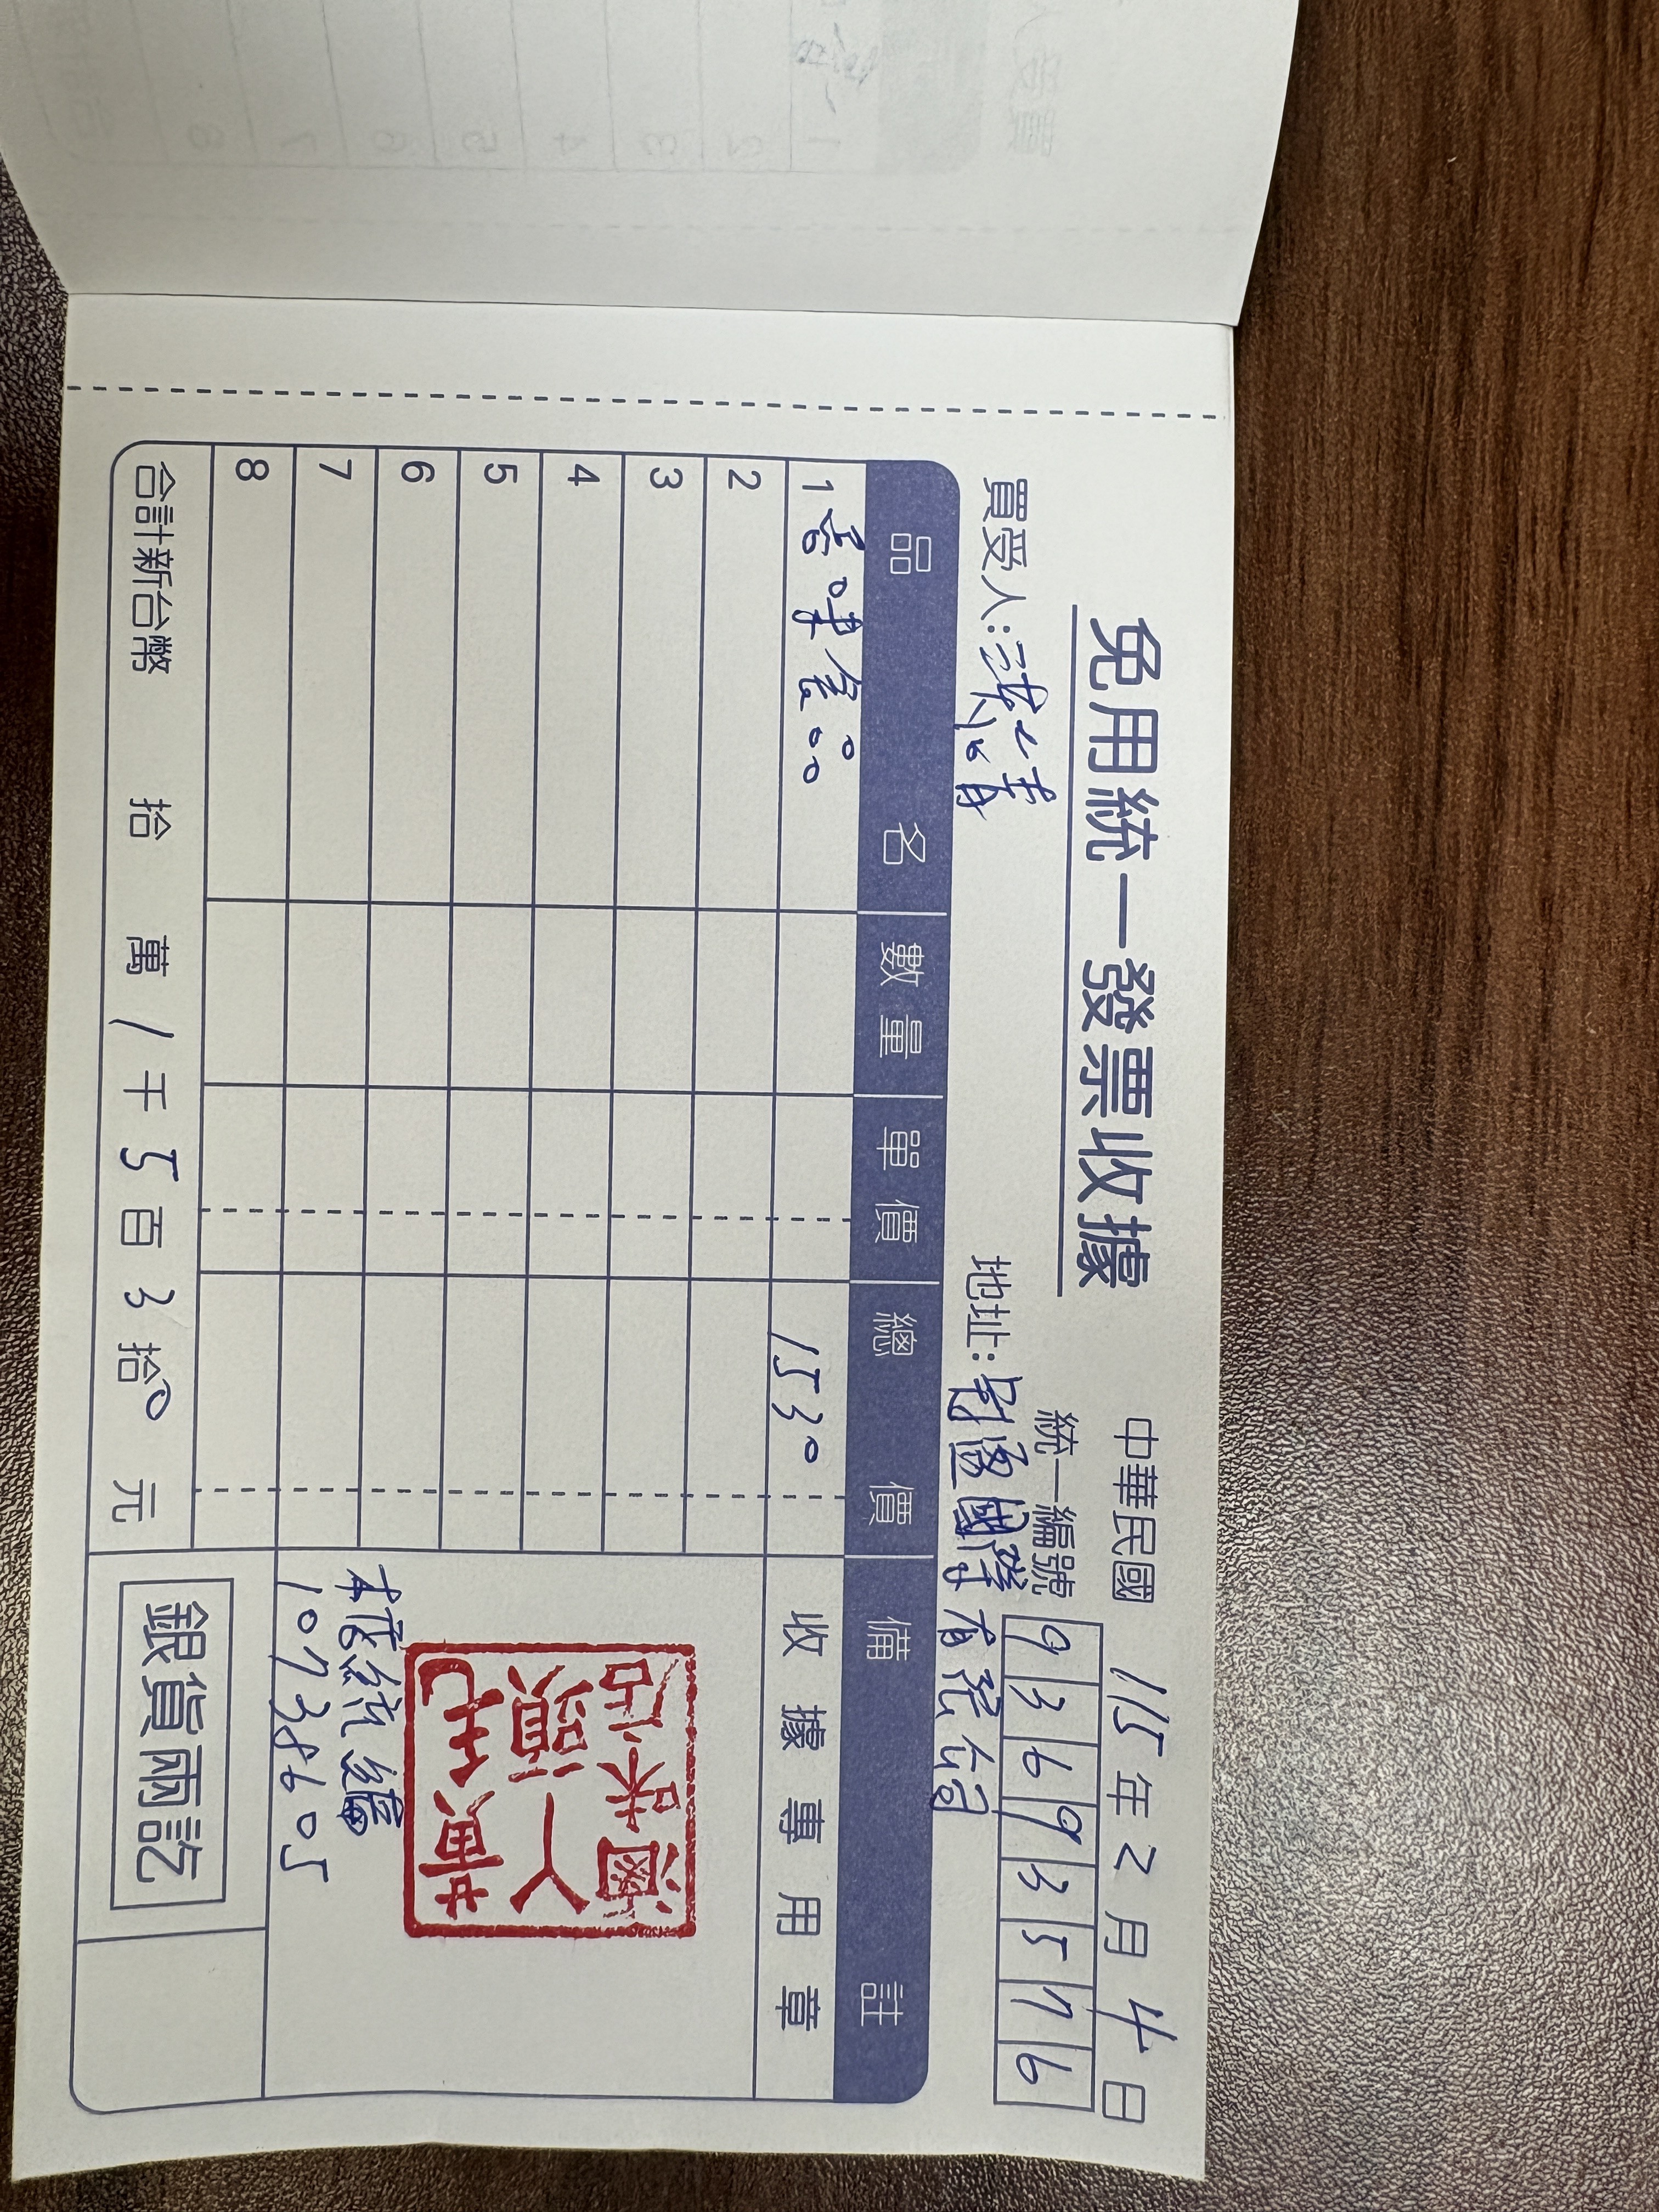 免用統一發票收據
中華民國 115 年 2 月 4 日
統一編號 93693576
買受人:
地址: 國際有限公司
品名 數量 單價 總價 備註
1 喜嗶食品 1530 收據專用章
2
3
4
5
6
7
8
滷味店
丫頭
黃毛
本店統編
10738605
合計新台幣 拾 萬 1 千 5 百 3 拾 0 元
銀貨兩訖
1
2
3
4
5
6
7
8